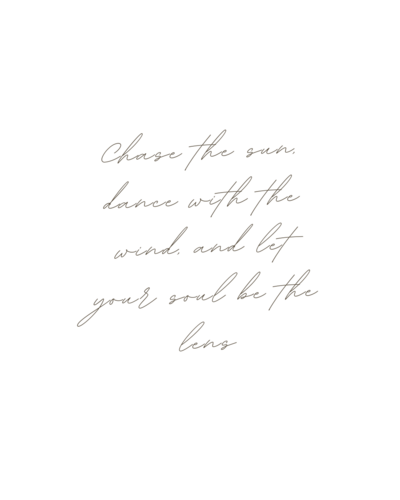 Chase the sun,
dance with the
wind, and let
your soul be the
lens